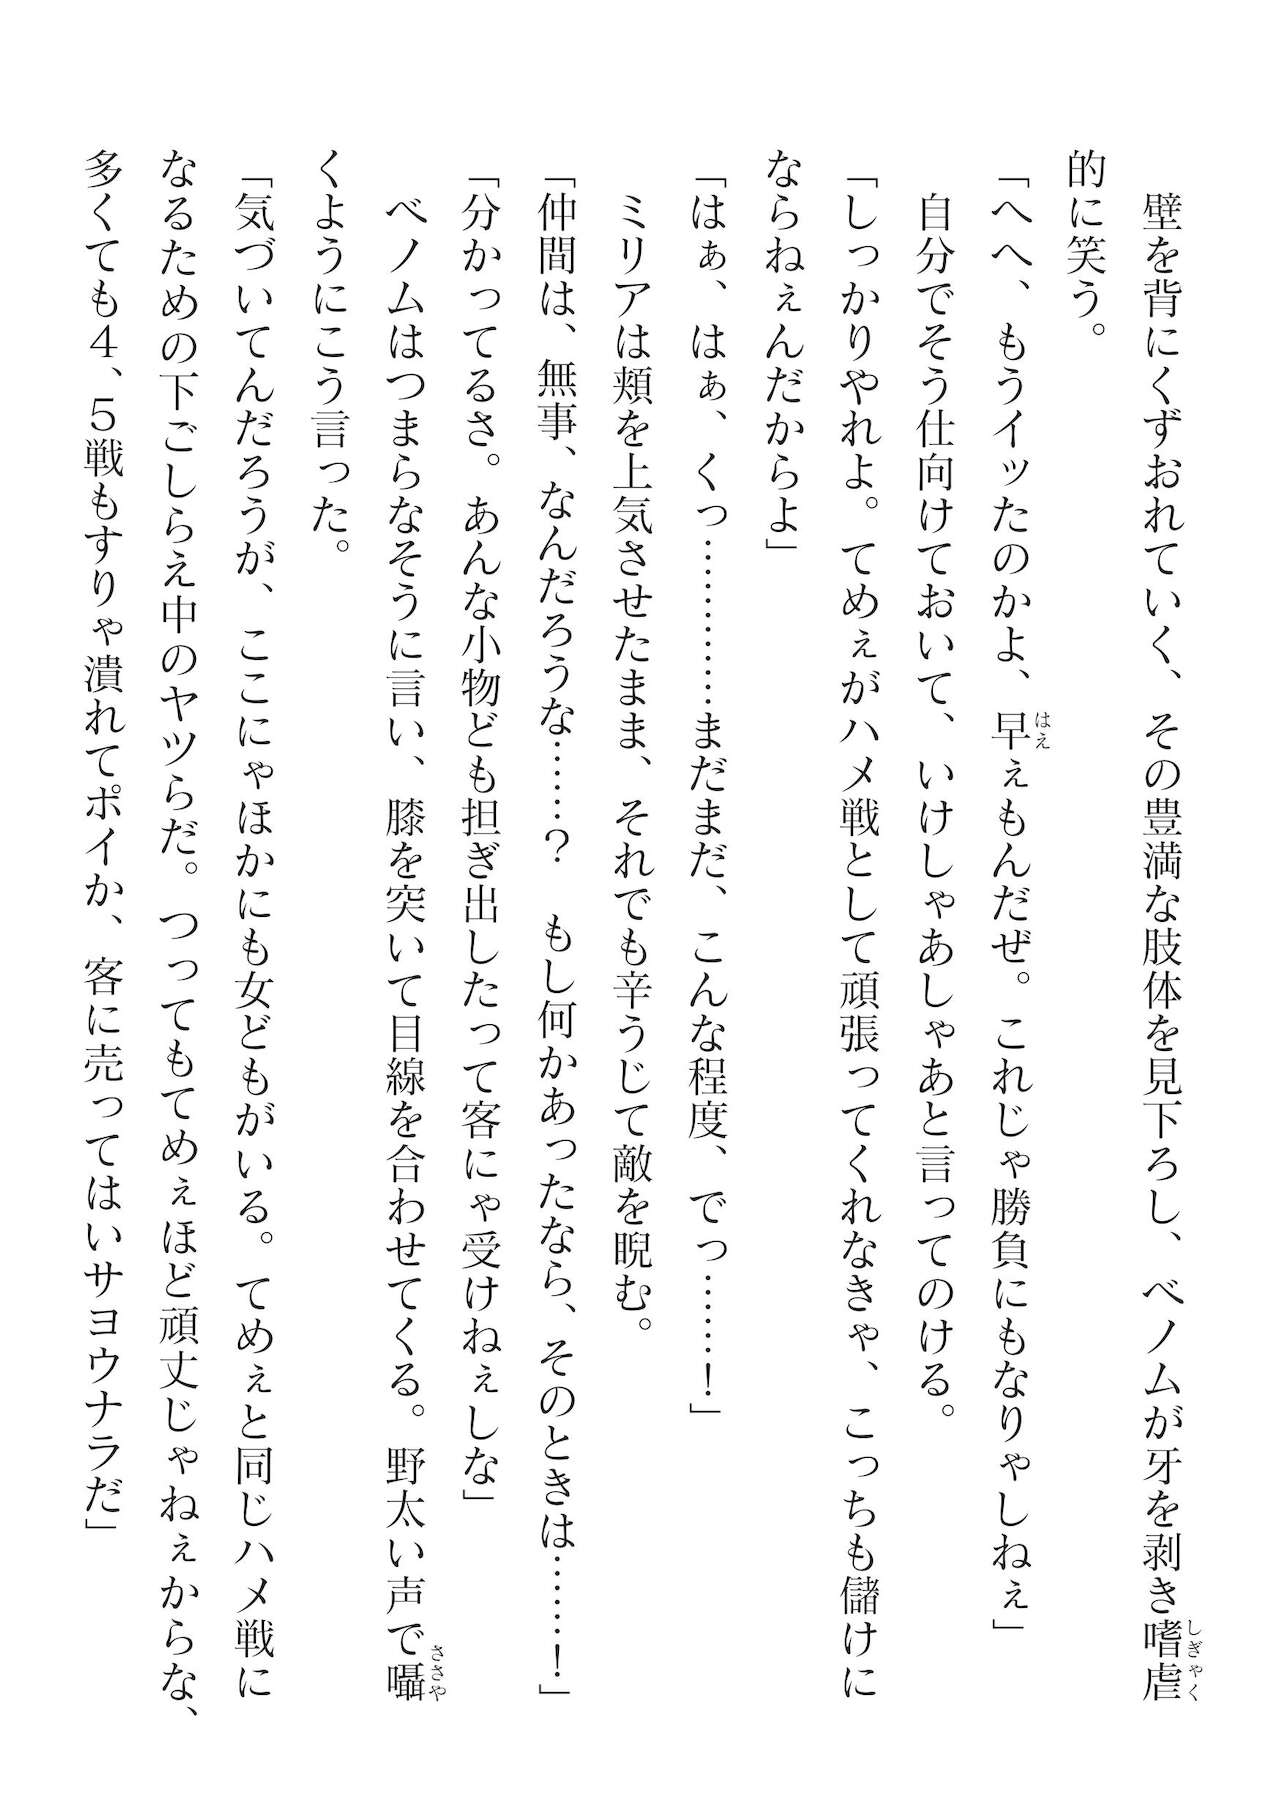 壁を背にくずおれていく、その豊満な肢体を見下ろし、ベノムが牙を剥き嗜虐
的に笑う。
「へへ、もうイッたのかよ、早ぇもんだぜ。これじゃ勝負にもなりゃしねぇ」
自分でそう仕向けておいて、いけしゃあしゃあと言ってのける。
「しっかりやれよ。てめぇがハメ戦として頑張ってくれなきゃ、こっちも儲けに
ならねぇんだからよ」
「はぁ、はぁ、くっ…………まだまだ、こんな程度、でっ……！」
ミリアは頬を上気させたまま、それでも辛うじて敵を睨む。
「仲間は、無事、なんだろうな……？　もし何かあったなら、そのときは……！」
「分かってるさ。あんな小物ども担ぎ出したって客にゃ受けねぇしな」
ベノムはつまらなそうに言い、膝を突いて目線を合わせてくる。野太い声で囁
くようにこう言った。
「気づいてんだろうが、ここにゃほかにも女どもがいる。てめぇと同じハメ戦に
なるための下ごしらえ中のヤツらだ。つってもてめぇほど頑丈じゃねぇからな、
多くても４、５戦もすりゃ潰れてポイか、客に売ってはいサヨウナラだ」
はえ
しぎゃく
ささや